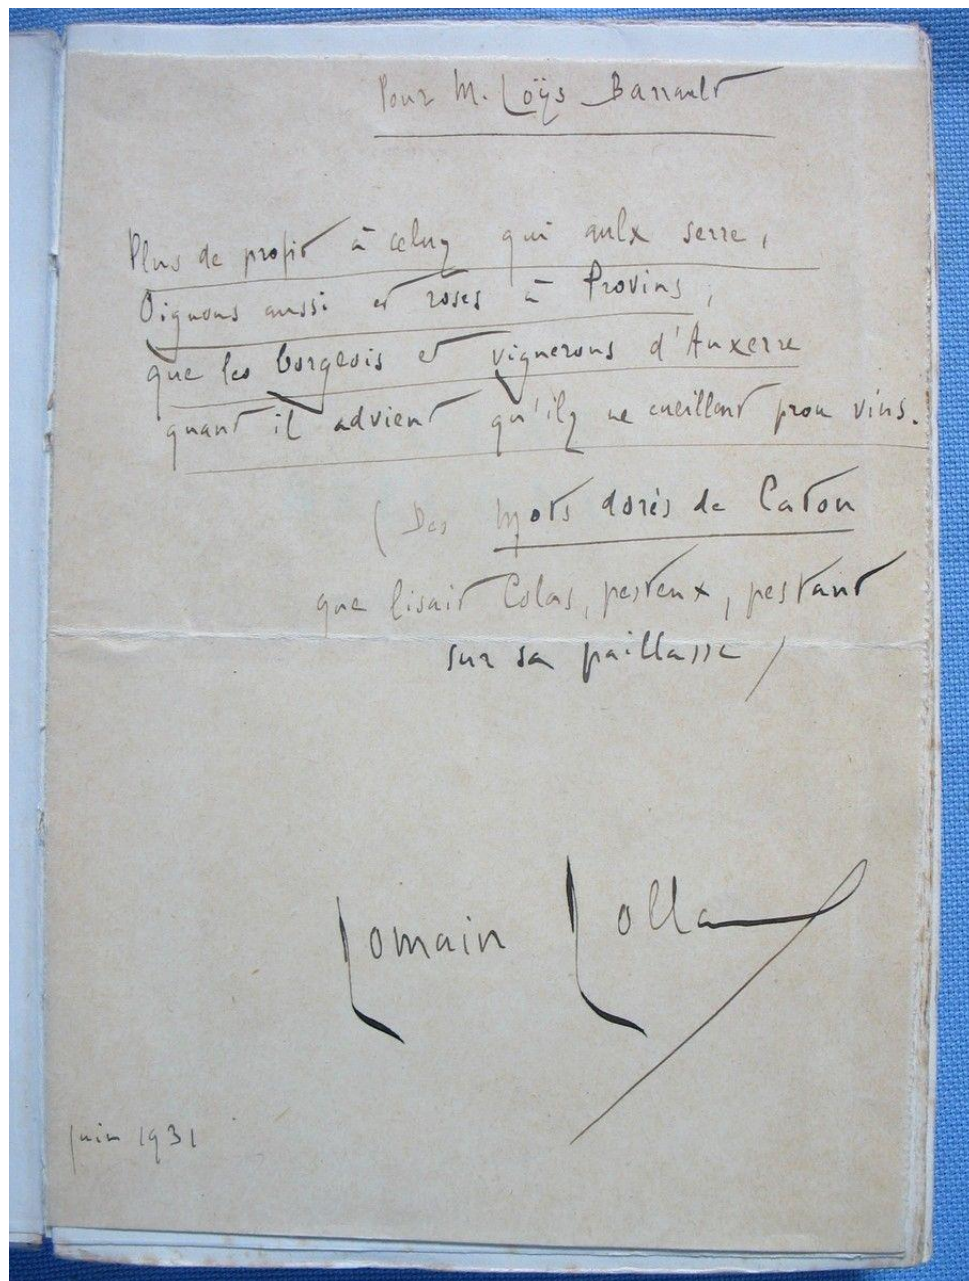 Pour M. Loÿs Barrault
Plus de profit à celuy qui aulx serre,
Oignons aussi et roses à Provins,
que les borgeois et vignerons d'Auxerre
quant il advient qu'ilz ne cueillent prou vins.
(Des Mots dorés de Caton
que lisait Colas, pesteux, pestant
sur sa paillasse)
Romain Rolland
juin 1931